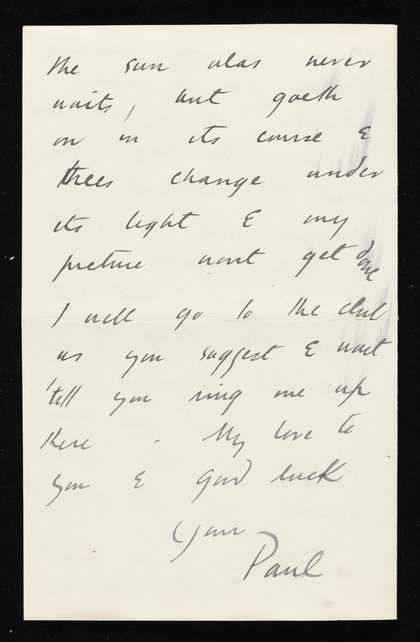 the sun alas never
waits, but goeth
on in its course &
trees change under
its light & my
picture wont get done
I will go to the club
as you suggest & wait
'till you ring me up
there . My love to
you & good luck
Your
Paul